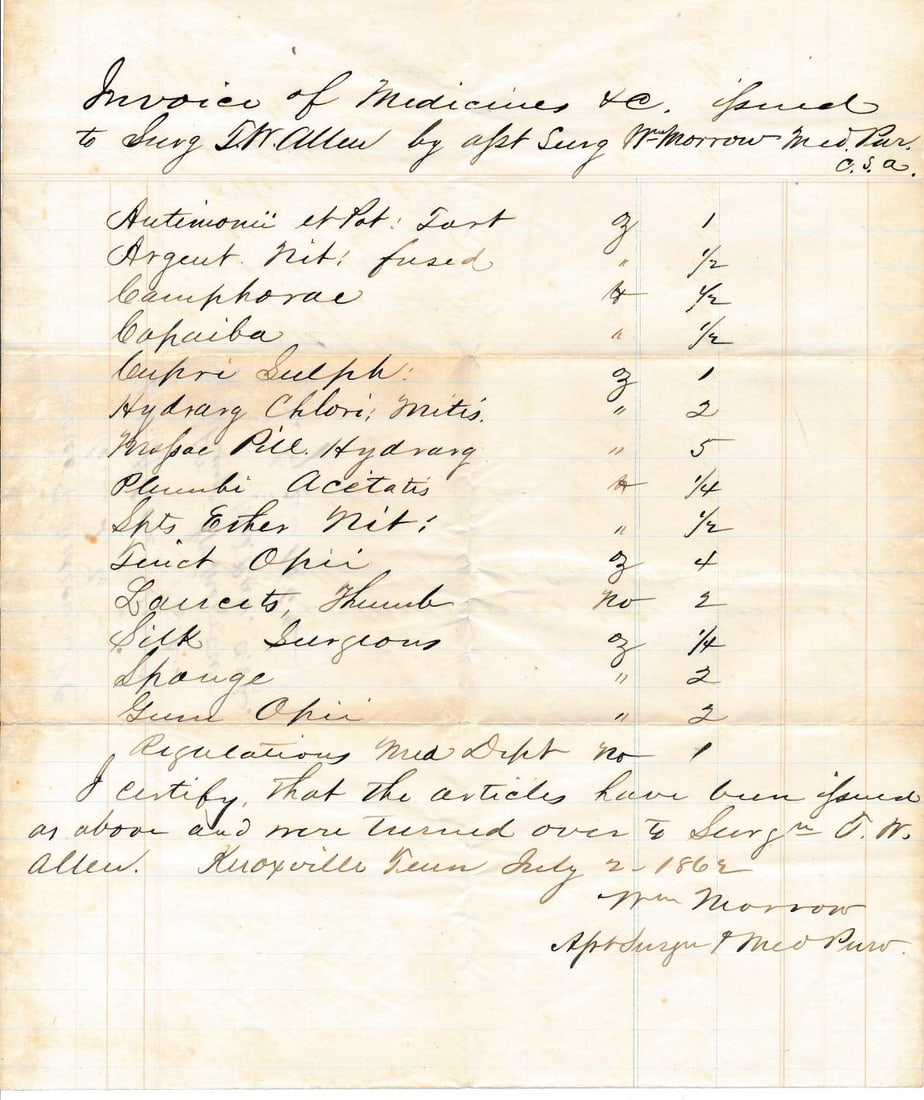 Invoice of Medicines &C. issued
to Surg T.W. Allen by asst Surg Wm Morrow Med. Pur.
C.S.A.
Antimonii et Pot: Tart ℥ 1
Argent. Nit: fused " 1/2
Camphorae ℔ 1/2
Copaiba " 1/2
Cupri Sulph: ℥ 1
Hydrarg Chlori; Mitis. " 2
Massae Pill. Hydrarg " 5
Plumbi Acetatis ℔ 1/4
Spts Ether Nit: " 1/2
Tinct Opii ℥ 4
Lancets, Thumb No 2
Silk Surgeons ℥ 1/4
Sponge " 2
Gum Opii " 2
Regulations Med Dept No 1
I certify, that the articles have been issued
as above and were turned over to Surgn T. W.
Allen. Knoxville Tenn July 2 - 1862
Wm Morrow
Asst Surgn & Med Purv.